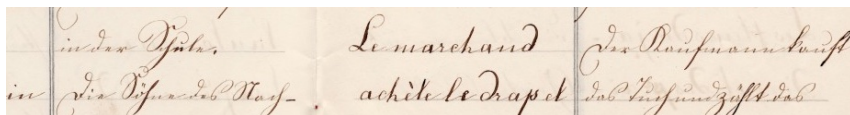 in der Schule. Le marchand Der Kaufmann kauft
in Die Söhne des Nach- achète le drap et das Tuch und zählt das